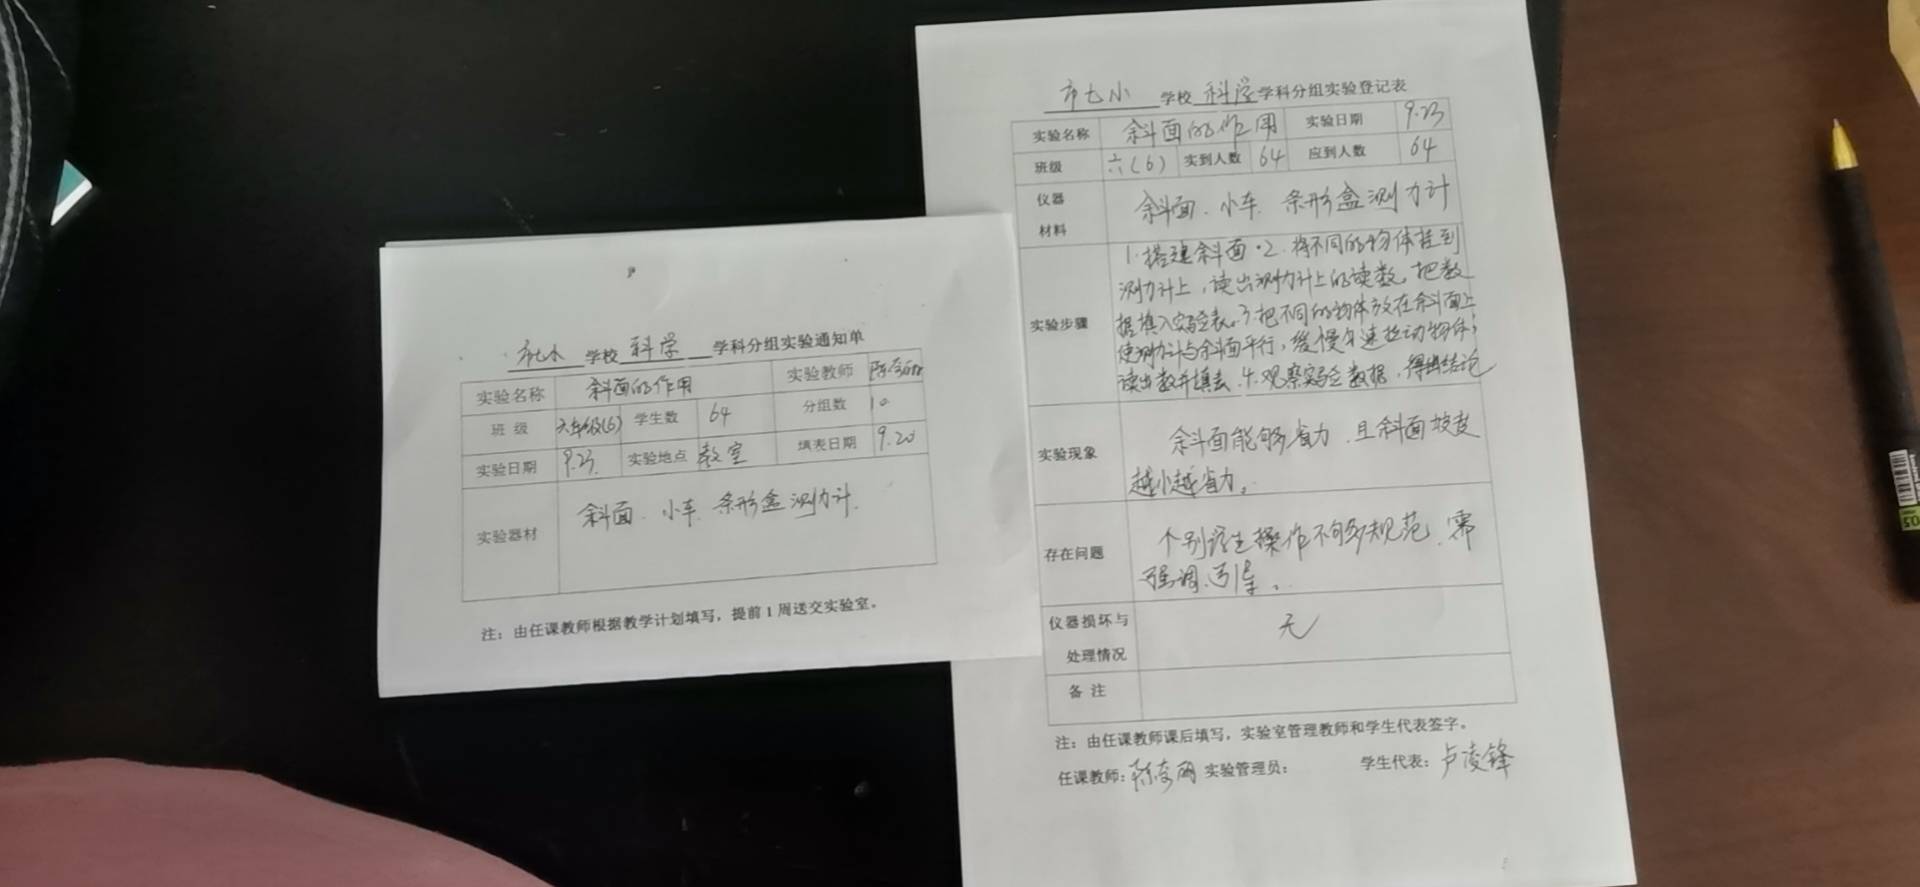 市七小 学校 科学 学科分组实验通知单
实验名称 斜面的作用 实验教师
班 级 六年级(6) 学生数 64 分组数 10
实验日期 9.23. 实验地点 教室 填表日期 9.20
实验器材 斜面、小车、条形盒测力计.
注：由任课教师根据教学计划填写，提前1周送交实验室。
市七小 学校 科学 学科分组实验登记表
实验名称 斜面的作用 实验日期 9.23
班级 六(6) 实到人数 64 应到人数 64
仪器
材料
斜面、小车、条形盒测力计
实验步骤
1.搭建斜面.2.将不同的物体挂到
测力计上,读出测力计上的读数,把数
据填入实验表。3把不同的物体放在斜面上
使测力计与斜面平行,缓慢匀速拉动物体;
读出数并填表.4.观察实验数据,得出结论
实验现象
斜面能够省力,且斜面坡度
越小越省力。
存在问题
个别学生操作不够规范,需
强调、引导。
仪器损坏与
处理情况
无
备 注
注：由任课教师课后填写，实验室管理教师和学生代表签字。
任课教师: 实验管理员: 学生代表: 卢凌锋